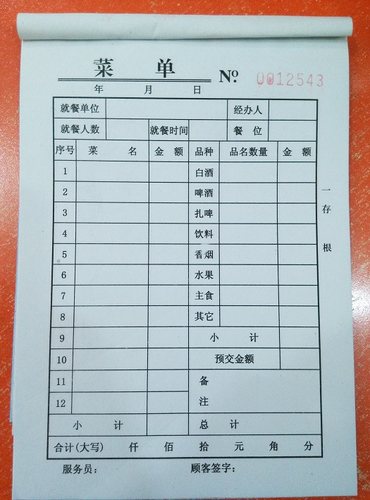 菜 单 № 0012543
年 月 日
就餐单位 经办人
就餐人数 就餐时间 餐 位
序号 菜 名 金 额 品种 品名数量 金 额
1 白酒
2 啤酒
3 扎啤
4 饮料
5 香烟
6 水果
7 主食
8 其它
9 小 计
10 预交金额
11 备
12 注
小 计 总 计
合计(大写) 仟 佰 拾 元 角 分
服务员: 顾客签字:
一存根